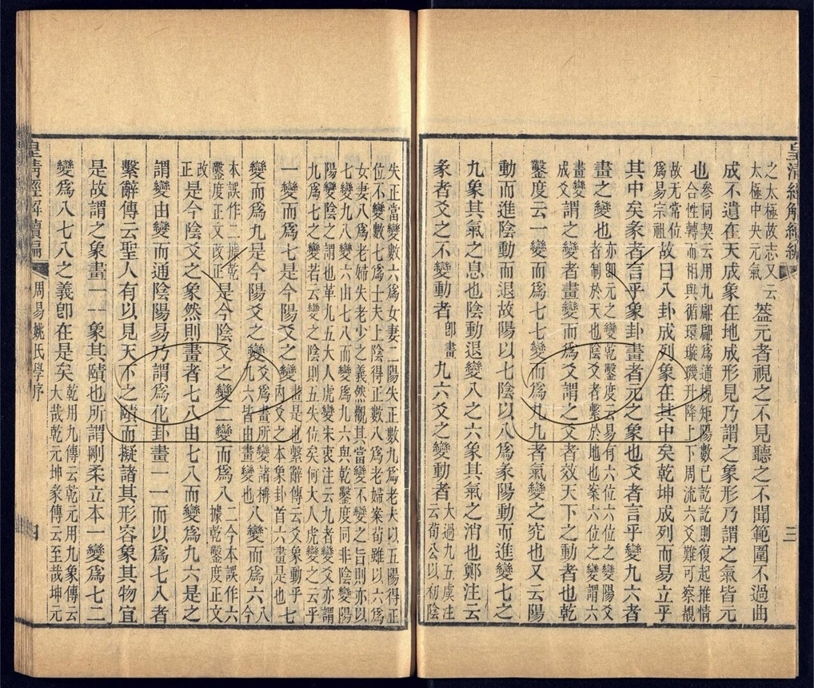 皇清經解續編
三
之太極故志又云
太極中央元氣
葢元者視之不見聽之不聞範圍不過曲
成不遺在天成象在地成形見乃謂之象形乃謂之氣皆元
也
參同契云用九翩翩爲道規矩陽數已訖訖則復起推情
合性轉而相與循環璇璣升降上下周流六爻難可察覩
故无常位
爲易宗祖
故曰八卦成列象在其中矣乾坤成列而易立乎
其中矣彖者言乎象卦畫者元之象也爻者言乎變九六者
畫之變也
亦卽元之變乾鑿度云易有六位六位之變陽爻
者制於天也陰爻者繫於地也案六位之變謂六
畫變
成爻
謂之變者畫變而爲爻謂之爻者效天下之動者也乾
鑿度云一變而爲七七變而爲九九者氣變之究也又云陽
動而進陰動而退故陽以七陰以八爲彖陽動而進變七之
九象其氣之息也陰動退變八之六象其氣之消也鄭注云
彖者爻之不變動者
卽畫
九六爻之變動者
大過九五虞注
云荀公以初陰
失正當變數六爲女妻二陽失正數九爲老夫以五陽得正
位不變數七爲士夫上陰得正數八爲老婦案荀雖以六爲
女妻八爲老婦失老少之義然觀其當變不變之旨則亦以
七變九八變六由七八而變爲九六與乾鑿度同非陰變陽
陽變陰之謂也革九五大人虎變宋衷注云九者變爻亦謂
九爲七之變若云變之陰則五失位矣何大人虎變之云乎
一變而爲七是今陽爻之變
畫是也繫辭傳云爻象動乎
內爻之本象卦首六畫是也
七
變而爲九是今陽爻之變
爻爲畫所變諸稱
九六皆由畫變也
八變而爲六
八今
本誤作二據乾
鑿度正文改正
是今陰爻之變二變而爲八
二今本誤作六
據乾鑿度正文
改
正
是今陰爻之象然則畫者七八由七八而變爲九六是之
謂變由變而通陰陽易乃謂爲化卦畫一一而以爲七八者
繫辭傳云聖人有以見天下之賾而擬諸其形容象其物宜
是故謂之象畫一一象其賾也所謂剛柔立本一變爲七二
變爲八七八之義卽在是矣
乾用九傳云乾元用九彖傳云
大哉乾元坤彖傳云至哉坤元
皇清經解續編
周易姚氏學序
四